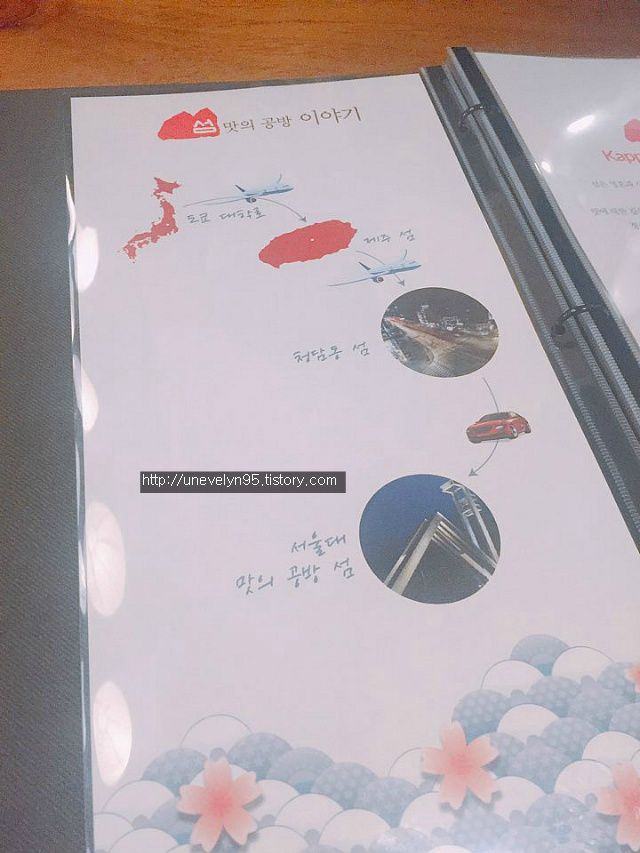 섬 맛의 공방 이야기
Kapp
도쿄 대학로
제주 섬
청담동 섬
http://unevelyn95.tistory.com
서울대
맛의 공방 섬